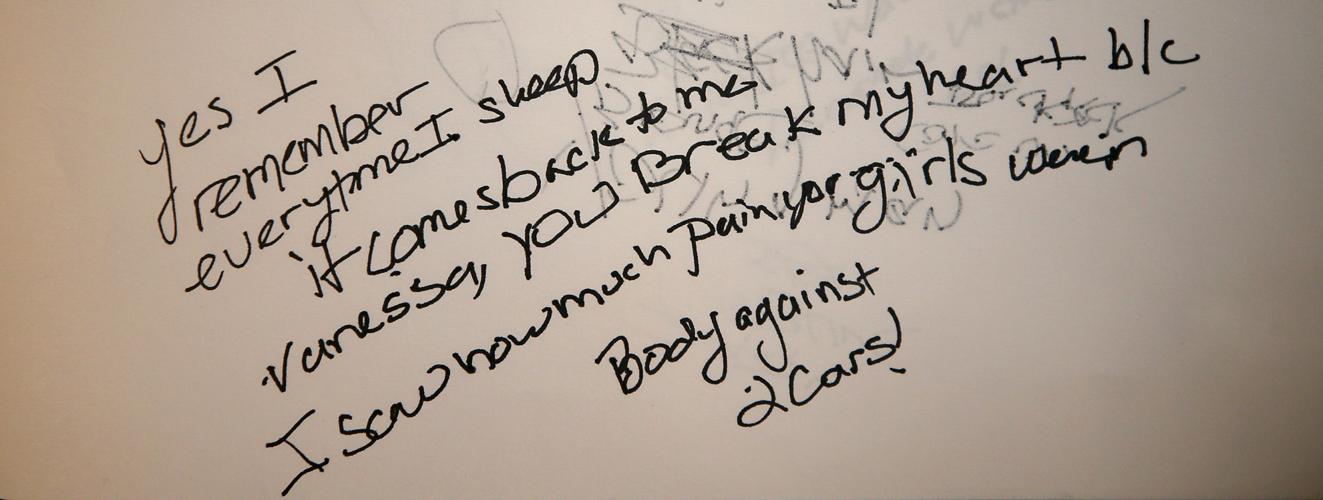 yes I
remember
everytime I sleep
it comes back to me
vanessa, you Break my heart b/c
I saw how much pain yor girls were in
Body against
2 cars!